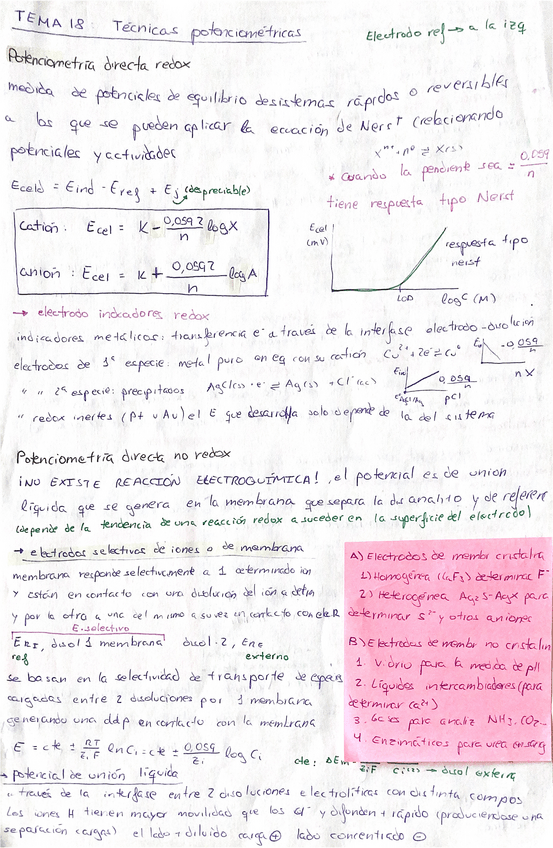 TEMA 18 Técnicas potenciométricas
Electrodo ref → a la izq
Potenciometría directa redox
medida de potenciales de equilibrio de sistemas rápidos o reversibles
a los que se pueden aplicar la ecuación de Nerst (relacionando
potenciales y actividades
Xⁿ⁺ + ne⁻ ⇌ X(s)
* Cuando la pendiente sea = 0,059/n
tiene respuesta tipo Nerst
Ecelda = Eind - Eref + Ej (despreciable)
catión: Ecel = K - 0,0592/n log X
anión: Ecel = K + 0,0592/n log A
Ecel (mV)
respuesta tipo nerst
LOD
log C (M)
→ electrodo indicadores redox
indicadores metálicos: transferencia e⁻ a través de la interfase electrodo-disolución
electrodos de 1ª especie: metal puro en eq con su catión Cu²⁺ + 2e⁻ ⇌ Cu⁰
-0,059/n
" " 2ª especie: precipitados AgCl(s) + e⁻ ⇌ Ag(s) + Cl⁻(ac)
0,059/n
pCl
" redox inertes (Pt u Au) el E que desarrolla solo depende de la del sistema
Potenciometría directa no redox
¡NO EXISTE REACCIÓN ELECTROQUÍMICA!, el potencial es de union
líquida que se genera en la membrana que separa la dis analito y de referen
(depende de la tendencia de una reacción redox a suceder en la superficie del electrodo)
→ electrodos selectivos de iones o de membrana
membrana responde selectivamente a 1 determinado ion
y están en contacto con una disolución del ión a determ
y por la otra a una del mismo a su vez en contacto con ele R
E. selectivo
, disol 1 membrana disol. 2,
ref externo
se basan en la selectividad de transporte de especies
cargadas entre 2 disoluciones por 1 membrana
generando una ddp en contacto con la membrana
E = cte ± RT/ziF ln Ci = cte ± 0,059/zi log Ci
→ disol externa
A) Electrodos de membr cristalina
1) Homogénea (LaF₃) determinar F⁻
2) Heterogénea Ag₂S-AgX para
determinar S²⁻ y otros aniones
B) Electrodos de membr no cristalin
1. Vidrio para la medida de pH
2. Líquidos intercambiadores (para
determinar Ca²⁺)
3. Gases para analiz NH₃, CO₂...
4. Enzimáticos para urea en sang
→ potencial de unión líquida
a través de la interfase entre 2 disoluciones electrolíticas con distinta compos
Los iones H tienen mayor movilidad que los Cl⁻ y difunden + rápido (produciendose una
separación cargas) el lado + diluido carga ⊕ lado concentrado ⊖